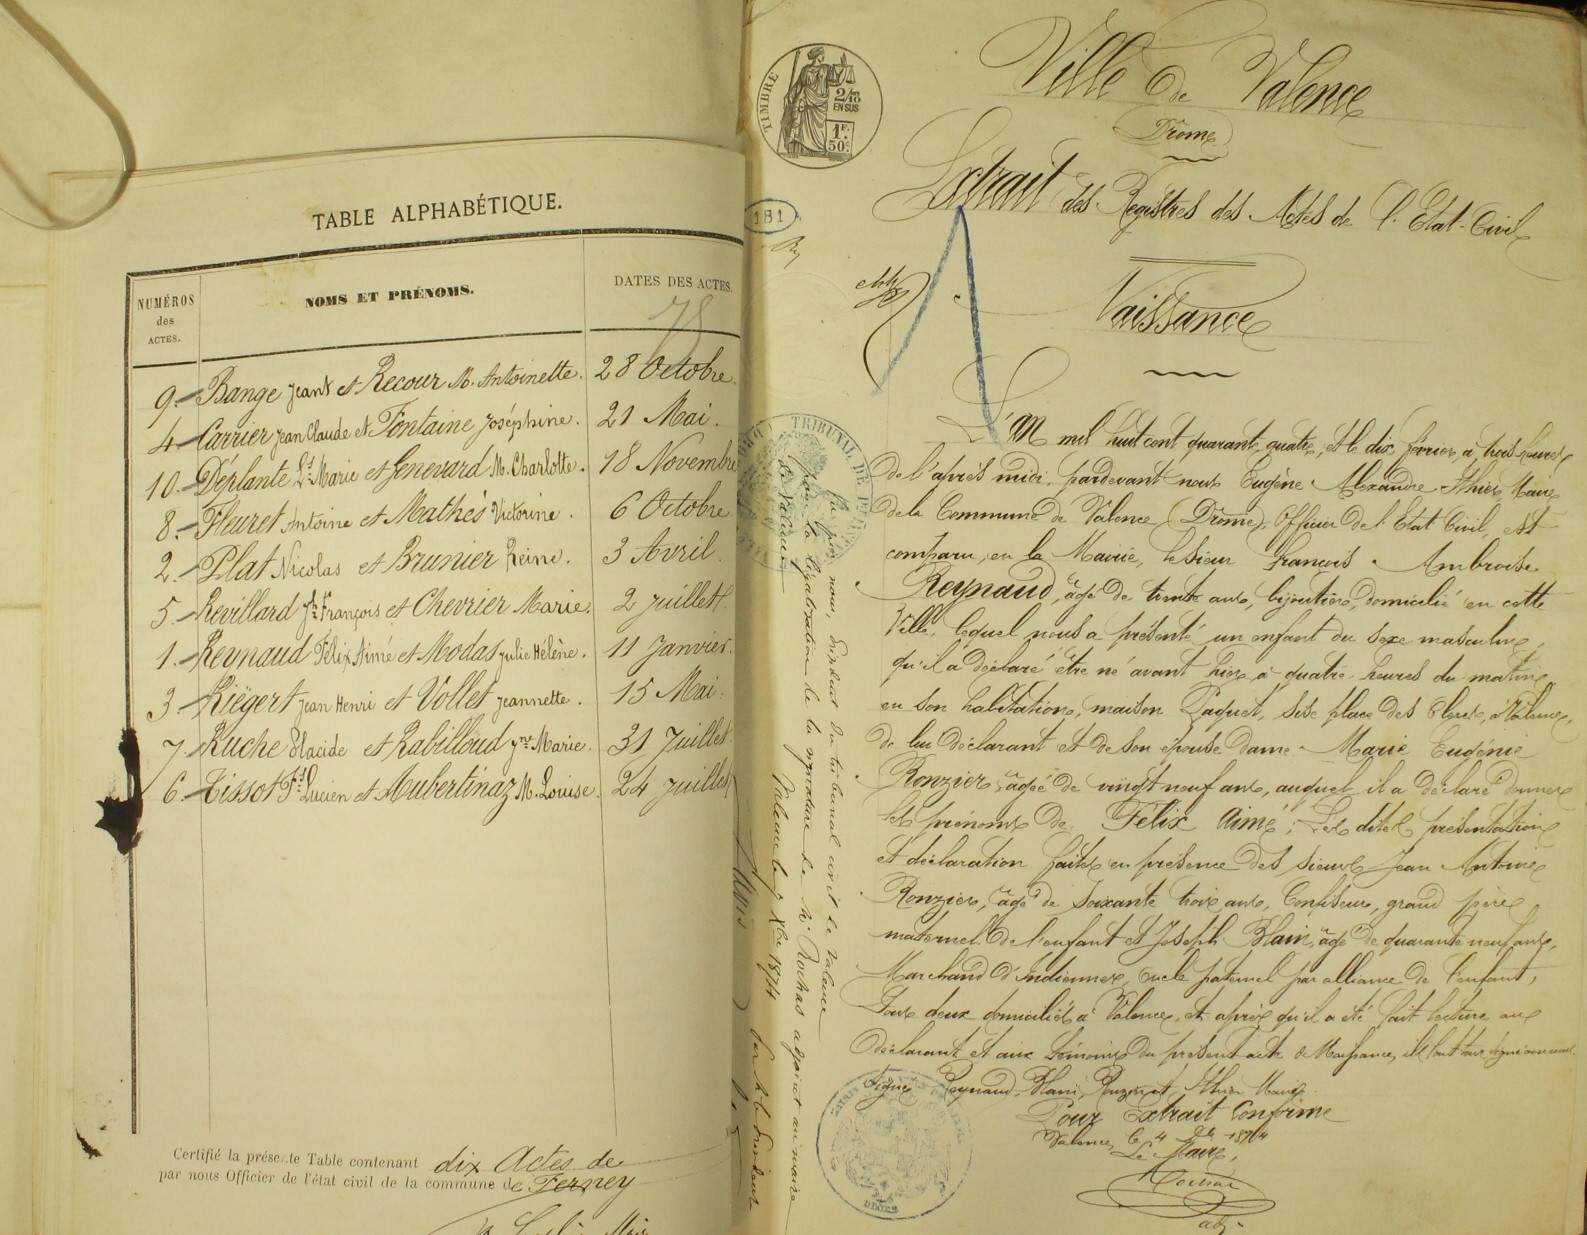 TABLE ALPHABÉTIQUE.
NUMÉROS
des
ACTES.
NOMS ET PRÉNOMS.
DATES DES ACTES.
78
9. Bange Jean et Recour M. Antoinette. 28 Octobre.
4. Carrier Jean Claude et Fontaine Joséphine. 21 Mai.
10. Déplante Ls. Marie et Genevard M. Charlotte. 18 Novembre
8. Fleuret Antoine et Mathés Victorine. 6 Octobre
2. Plat Nicolas et Brunier Reine. 3 Avril.
5. Revillard François et Chevrier Marie. 2 Juillet.
1. Reynaud Félix Aimé et Modas Julie Hélène. 11 Janvier.
3. Riëgert Jean Henri et Vollet Jeannette. 15 Mai.
7. Ruche Placide et Rabilloud Marie. 31 Juillet
6. Tissot Fs. Lucien et Aubertinaz M. Louise. 24 Juillet
Certifié la présente Table contenant dix Actes de
par nous Officier de l'état civil de la commune de Ferney
TIMBRE
2/10
EN SUS
1F.
50c.
181
Ville de Valence
Drôme
Extrait des Registres des Actes de l'Etat-Civil
Naissance
L'An mil huit cent quarante quatre, et le dix février, à trois heures
de l'après midi, pardevant nous Eugène Alexandre Thier Maire
de la Commune de Valence (Drôme), Officier de l'Etat Civil, est
comparu, en la Mairie, le sieur François Ambroise
Reynaud, âgé de trente ans, bijoutier, domicilié en cette
Ville, lequel nous a présenté un enfant du sexe masculin,
qu'il a déclaré être né avant hier à quatre heures du matin,
en son habitation, maison Paquet, sise place des Clercs, à Valence,
de lui déclarant et de son épouse dame Marie Eugénie
Ronzier, âgée de vingt neuf ans, auquel il a déclaré donner
les prénoms de Félix Aimé; Les dites présentation
et déclaration faites en présence des sieurs Jean Antoine
Ronzier, âgé de soixante trois ans, Confiseur, grand père
maternel de l'enfant et Joseph Blain, âgé de quarante neuf ans,
Marchand d'Indiennes, oncle paternel par alliance de l'enfant,
Tous deux domiciliés à Valence, et après qu'il a été fait lecture aux
déclarant et aux témoins du présent acte de Naissance, ils l'ont tous signé avec nous.
Signé Reynaud, Blain, Ronzier et Thier Maire
Pour Extrait Conforme
Valence, le 4 1874
Le Maire,
adj.
Vu par nous, Président du tribunal civil de Valence
pour la légalisation de la signature de Mr. Rochas adjoint au maire
de Valence
Valence le Xbre 1874
TRIBUNAL DE